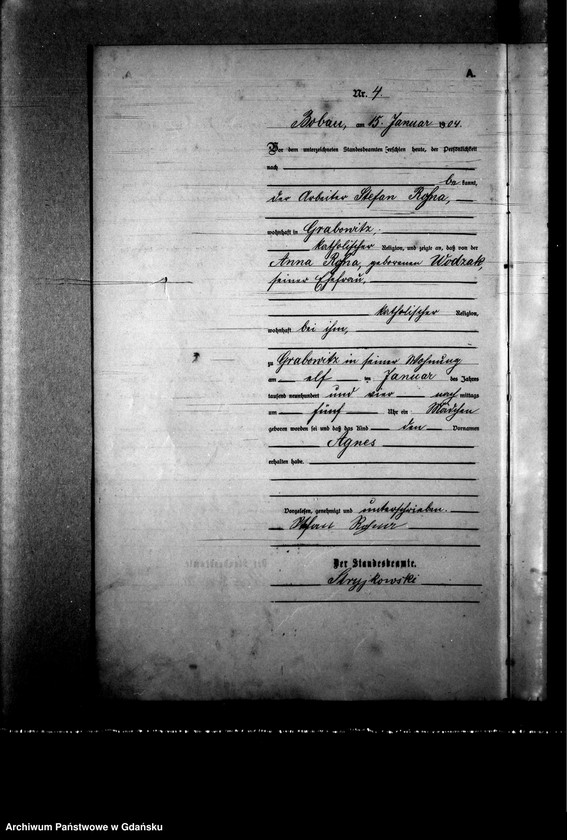 A.
Nr. 4.
Bobau, am 15. Januar 1904.
Vor dem unterzeichneten Standesbeamten erschien heute, der Persönlichkeit
nach
be kannt,
der Arbeiter Stefan
wohnhaft in Grabowitz,
katholischer Religion, und zeigte an, daß von der
Anna geborenen Wodzak,
seiner Ehefrau,
katholischer Religion,
wohnhaft bei ihm,
zu Grabowitz in seiner Wohnung
am elf ten Januar des Jahres
tausend neunhundert und vier nach mittags
um fünf Uhr ein Mädchen
geboren worden sei und daß das Kind den Vornamen
Agnes
erhalten habe.
Vorgelesen, genehmigt und unterschrieben.
Stefan
Der Standesbeamte.
Stryjkowski
Archiwum Państwowe w Gdańsku